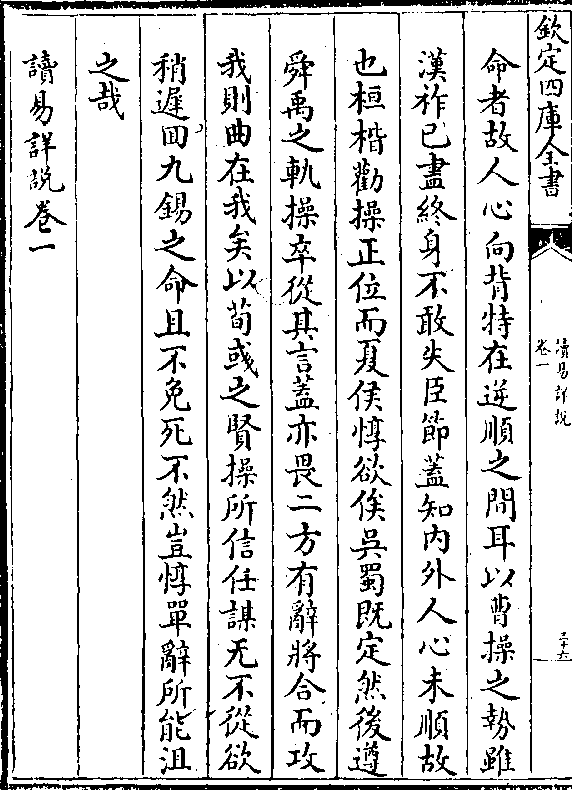 欽定四庫全書
讀易詳說
卷一
二十六
命者故人心向背特在逆順之間耳以曹操之勢雖
漢祚已盡終身不敢失臣節蓋知内外人心未順故
也桓楷勸操正位而夏侯惇欲俟吳蜀既定然後遵
舜禹之軌操卒從其言蓋亦畏二方有辭將合而攻
我則曲在我矣以荀彧之賢操所信任謀无不從欲
稍遲回九錫之命且不免死不然豈惇單辭所能沮
之哉
讀易詳說卷一